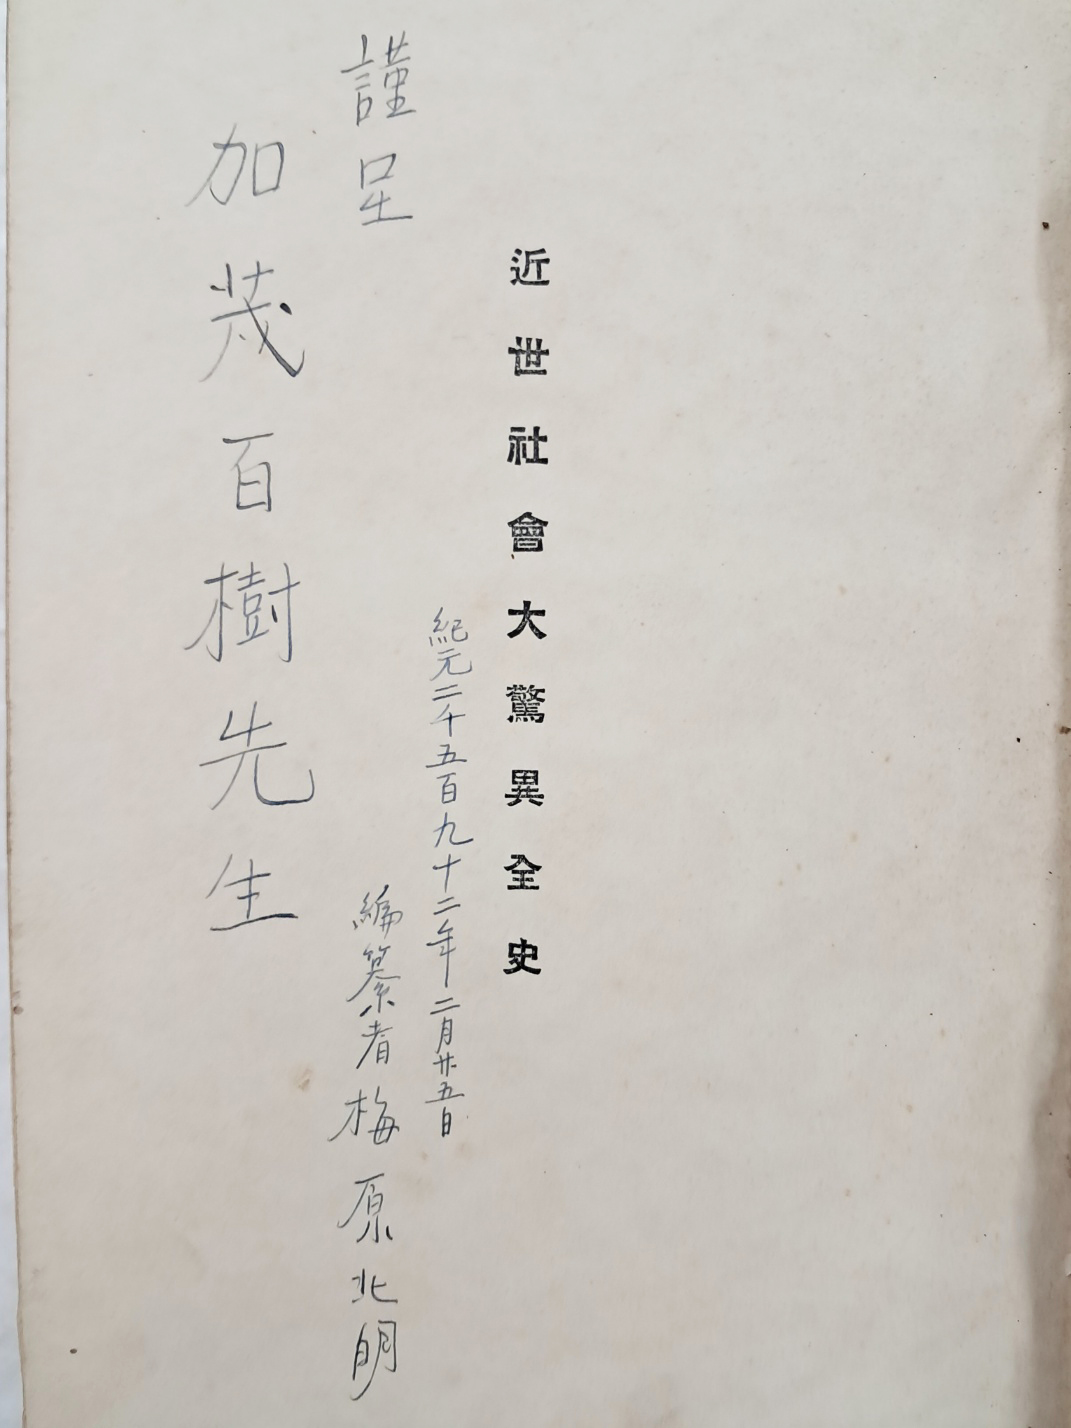 近世社會大驚異全史
紀元二千五百九十二年二月廿五日
謹呈
編纂者梅原北明
加茂百樹先生